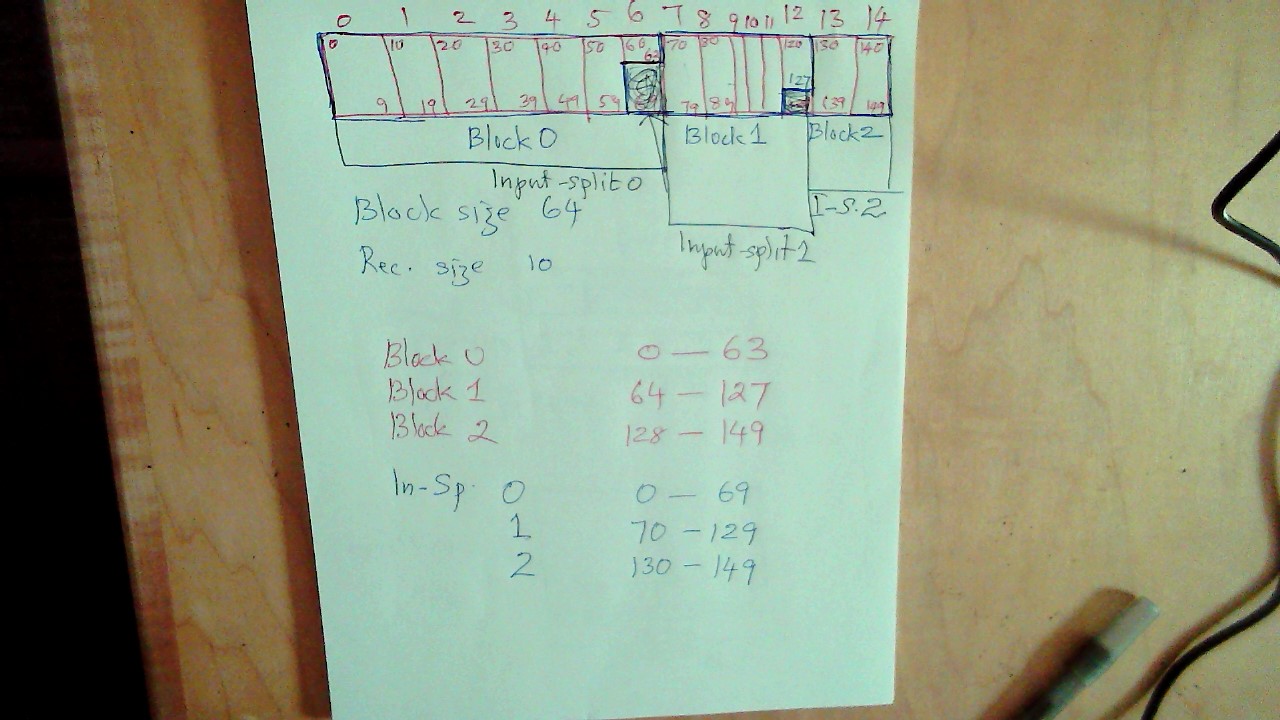 0 1 2 3 4 5 6 7 8 9 10 11 12 13 14
0 10 20 30 40 50 60 63 70 80 120 130 140
127
9 19 29 39 49 59 79 89 139 149
Block 0 Block 1 Block 2
Input-split 0
I-S.2
Block size 64
Input-split 1
Rec. size 10
Block 0 0 — 63
Block 1 64 — 127
Block 2 128 — 149
In-Sp. 0 0 — 69
1 70 — 129
2 130 — 149